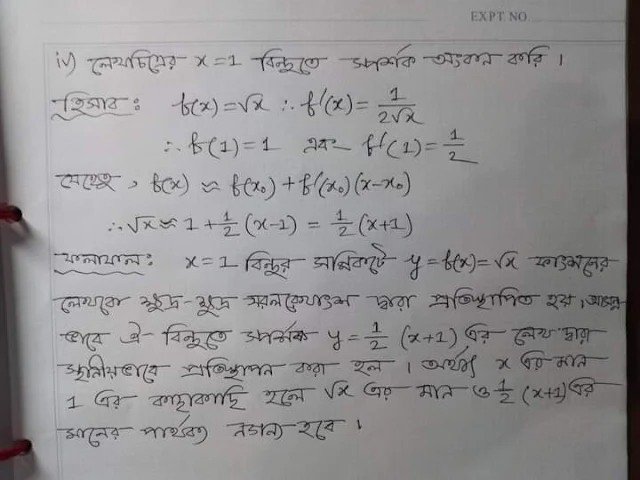 EXPT. NO.
iv) লেখচিত্রের x=1 বিন্দুতে স্পর্শক অংকন করি।
হিসাব: f(x)=√x ∴ f'(x)= 1/2√x
∴ f(1)=1 এবং f'(1)= 1/2
যেহেতু, f(x) ≈ f(x₀)+f'(x₀)(x-x₀)
∴ √x ≈ 1+ 1/2 (x-1) = 1/2 (x+1)
ফলাফল: x=1 বিন্দুর সন্নিকটে y=f(x)=√x ফাংশনের
লেখকে ক্ষুদ্র-ক্ষুদ্র সরলরেখাংশ দ্বারা প্রতিস্থাপিত হয়।
ভাবে ঐ বিন্দুতে স্পর্শক y= 1/2 (x+1) এর লেখ দ্বারা
স্থানীয়ভাবে প্রতিস্থাপন করা হল। অর্থাৎ x এর মান
1 এর কাছাকাছি হলে √x এর মান ও 1/2 (x+1) এর
মানের পার্থক্য নগন্য হবে।